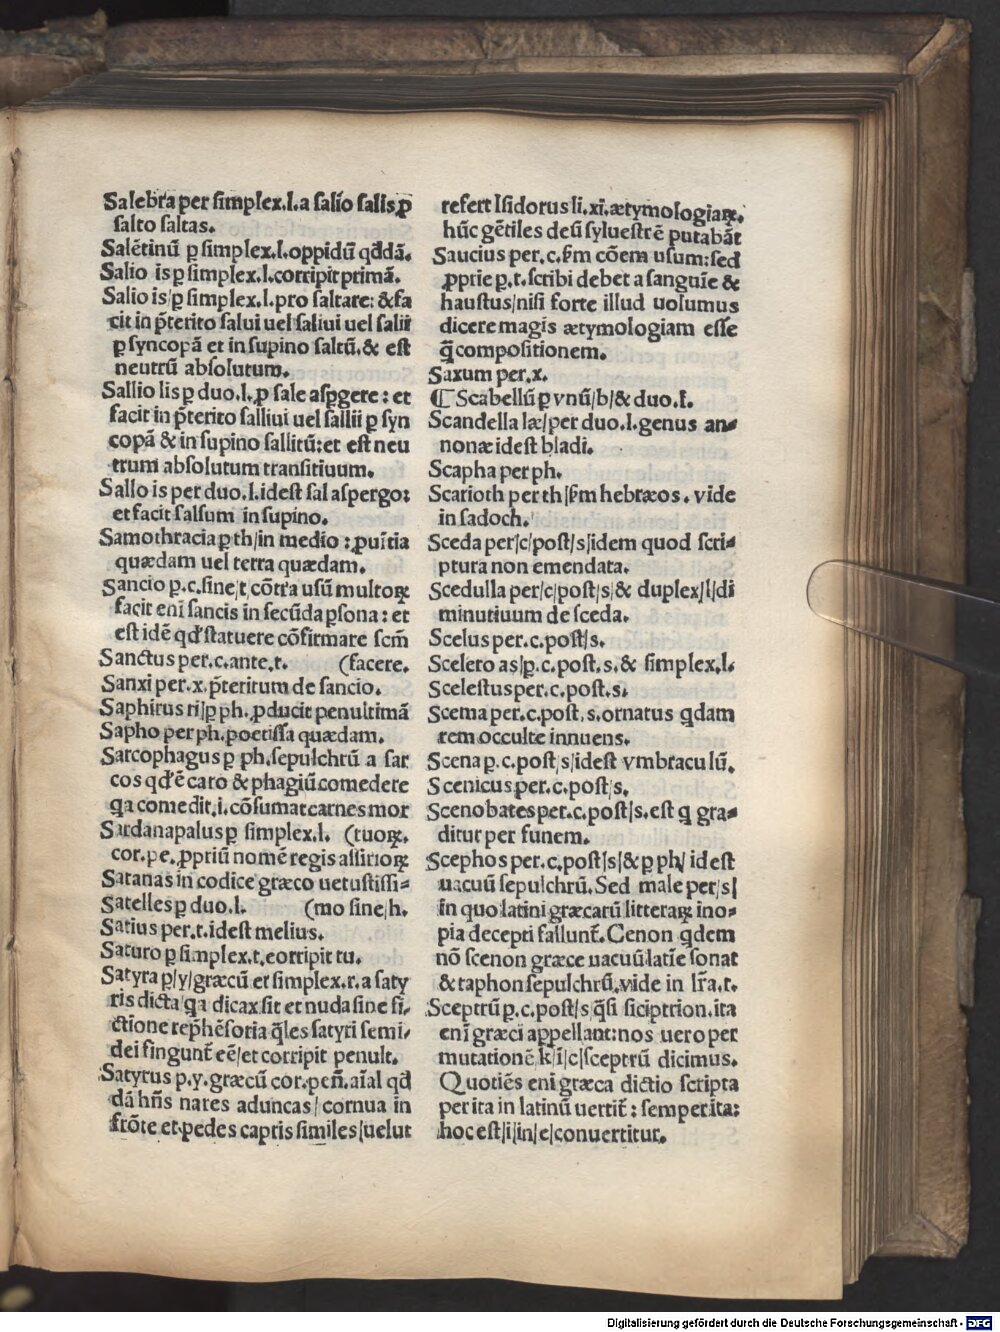 Salebra per simplex.l.a salio salis,ꝓ
salto saltas.
Salētinū ꝑ simplex.l.oppidū qđdā.
Salio is ꝑ simplex.l.corripit primā.
Salio is/ꝑ simplex.l.pro saltare: & fa
cit in p̄terito salui uel saliui uel salii
ꝑ syncopā et in supino saltū.& est
neutrū absolutum.
Sallio lis ꝑ duo.l.ꝓ sale aspgere: et
facit in p̄terito salliui uel sallii ꝑ syn
copā & in supino sallitū:et est neu
trum absolutum transitiuum.
Sallo is per duo.l.idest sal aspergo:
et facit salsum in supino.
Samothracia ꝑ th/in medio : ꝓuītia
quædam uel terra quædam.
Sancio ꝑ.c.sine/t/cōtra usū multoꝝ
facit enī sancis in secūda ꝑsona: et
est idē qđ statuere cōfirmare scm̄
Sanctus per.c.ante.t. (facere.
Sanxi per.x.p̄teritum de sancio.
Saphirus ri/ꝑ ph.ꝓducit penultimā
Sapho per ph.poetissa quædam.
Sarcophagus ꝑ ph.sepulchrū a sar
cos qđ ē caro & phagiū.comedere
qa comedit.i.cōsumat carnes mor
Sardanapalus ꝑ simplex.l. (tuoꝝ.
cor.pe.ꝓpriū nomē regis assirioꝝ
Satanas in codice græco uetustissi=
Satelles ꝑ duo.l. (mo sine/h.
Satius per.t.idest melius.
Saturo ꝑ simplex.t.corripit tu.
Satyra ꝑ/y/græcū et simplex.r.a saty
ris dicta qa dicax sit et nuda sine fi/
ctione rep̄hēsoria q̄les satyri semi/
dei fingunt̄ eē/et corripit penult.
Satyrus p.y.græcū cor.pen̄.aīal qđ
dā hn̄s nares aduncas/cornua in
frōte et pedes capris similes/uelut
refert Isidorus li.xi.ætymologiaꝝ.
hūc gētiles deū syluestrē putabāt
Saucius per.c.s̄m cōem usum:sed
ꝓprie ꝑ.t.scribi debet a sanguīe &
haustus/nisi forte illud uolumus
dicere magis ætymologiam esse
q̄ compositionem.
Saxum per.x.
¶ Scabellū ꝑ vnū/b/& duo.l.
Scandella læ/per duo.l.genus an=
nonæ idest bladi.
Scapha per ph.
Scarioth per th/s̄m hebræos. vide
in sadoch.
Sceda per/c/post/s/idem quod scri=
ptura non emendata.
Scedulla per/c/post/s/& duplex/l/di
minutiuum de sceda.
Scelus per.c.post/s.
Scelero as/ꝑ.c.post.s.& simplex.l.
Scelestus per.c.post.s.
Scema per.c.post.s.ornatus qdam
rem occulte innuens.
Scena ꝑ.c.post/s/idest vmbraculū.
Scenicus per.c.post/s.
Scenobates per.c.post/s.est q gra=
ditur per funem.
Scephos per.c.post/s/& ꝑ ph/ idest
uacuū sepulchrū. Sed male per/s/
in quo latini græcarū litteraꝝ ino=
pia decepti fallunt̄. Cenon qdem
nō scenon græce uacuū latīe sonat
& taphon sepulchrū.vide in lr̄a.t.
Sceptrū ꝑ.c.post/s/q̄si siciptrion.ita
enī græci appellant:nos uero per
mutationē k/ī/c/sceptrū dicimus.
Quotiēs enī græca dictio scripta
per ita in latinū uertit̄ : semper.ita:
hoc est/i/in/e/conuertitur.
Digitalisierung gefördert durch die Deutsche Forschungsgemeinschaft - DFG